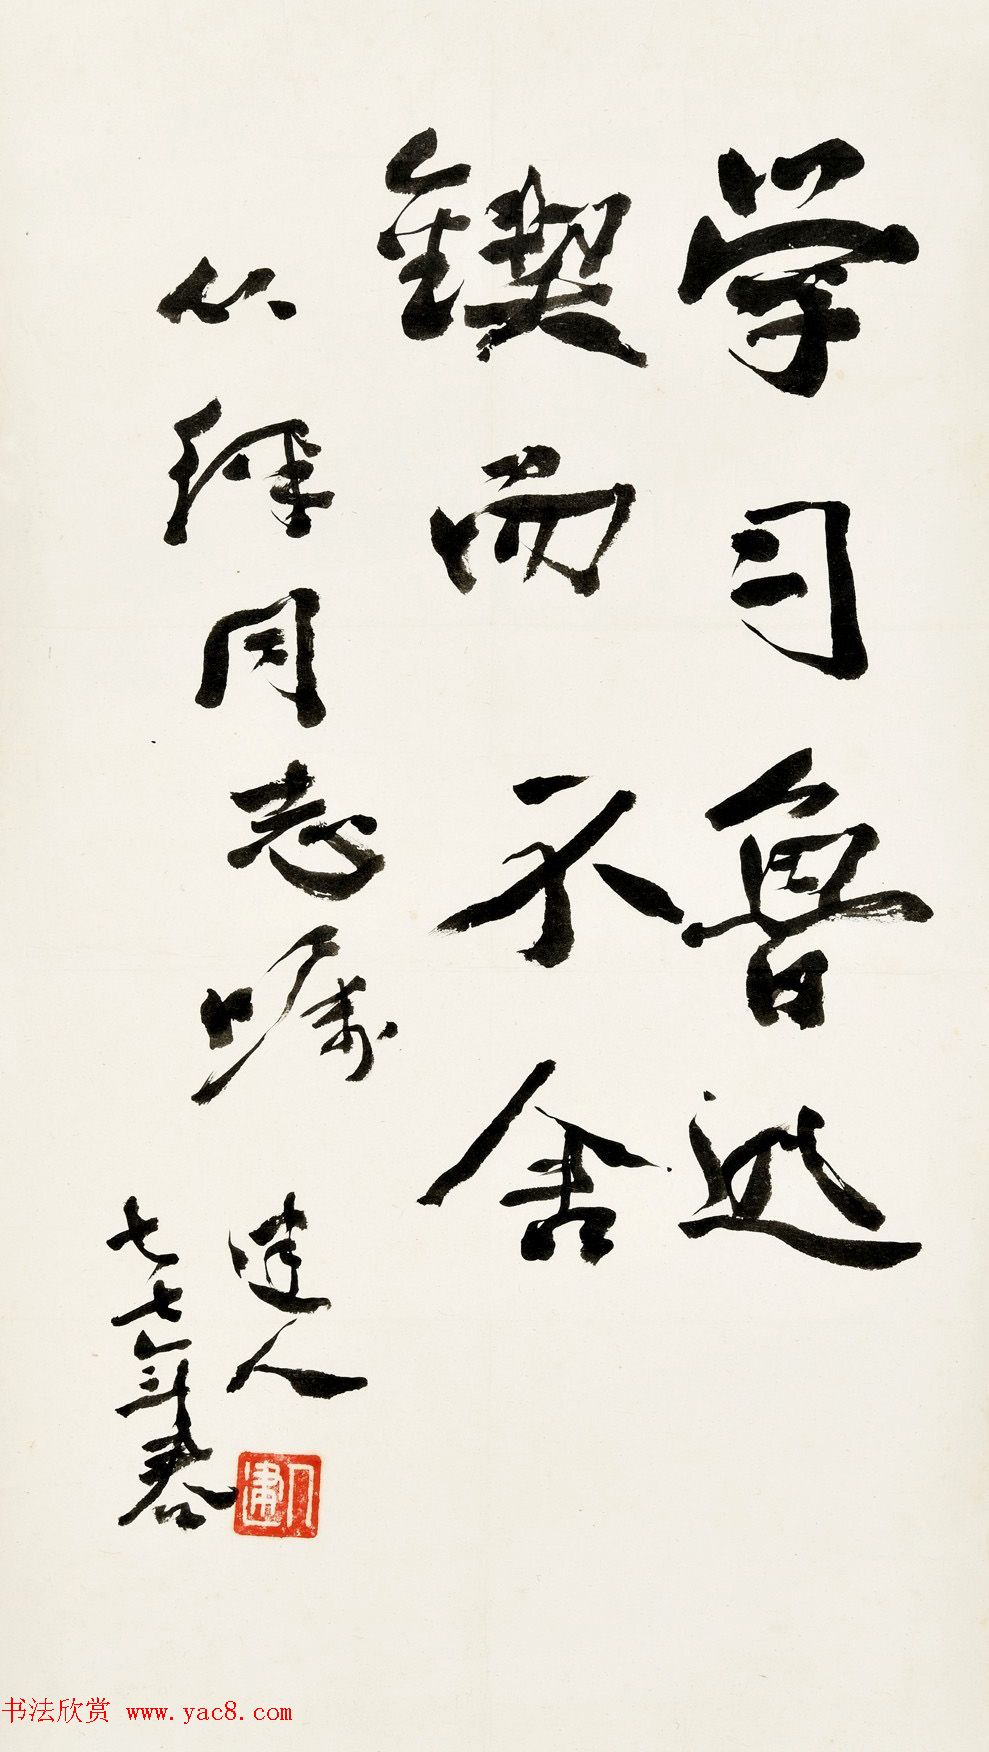 学习鲁迅
锲而不舍
心绎同志嘱
建人
七七年春
建人
书法欣赏 www.yac8.com